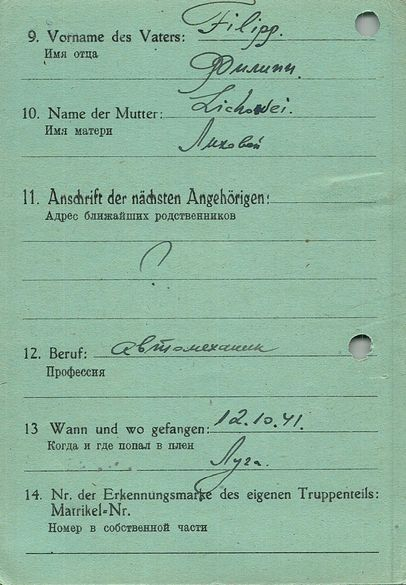 9. Vorname des Vaters: Filipp.
Имя отца
Филипп.
10. Name der Mutter: Lichowei.
Имя матери
Лиховой
11. Anschrift der nächsten Angehörigen:
Адрес ближайших родственников
12. Beruf: автомеханик
Профессия
13 Wann und wo gefangen: 12.10.41.
Когда и где попал в плен
Луга.
14. Nr. der Erkennungsmarke des eigenen Truppenteils:
Matrikel=Nr.
Номер в собственной части